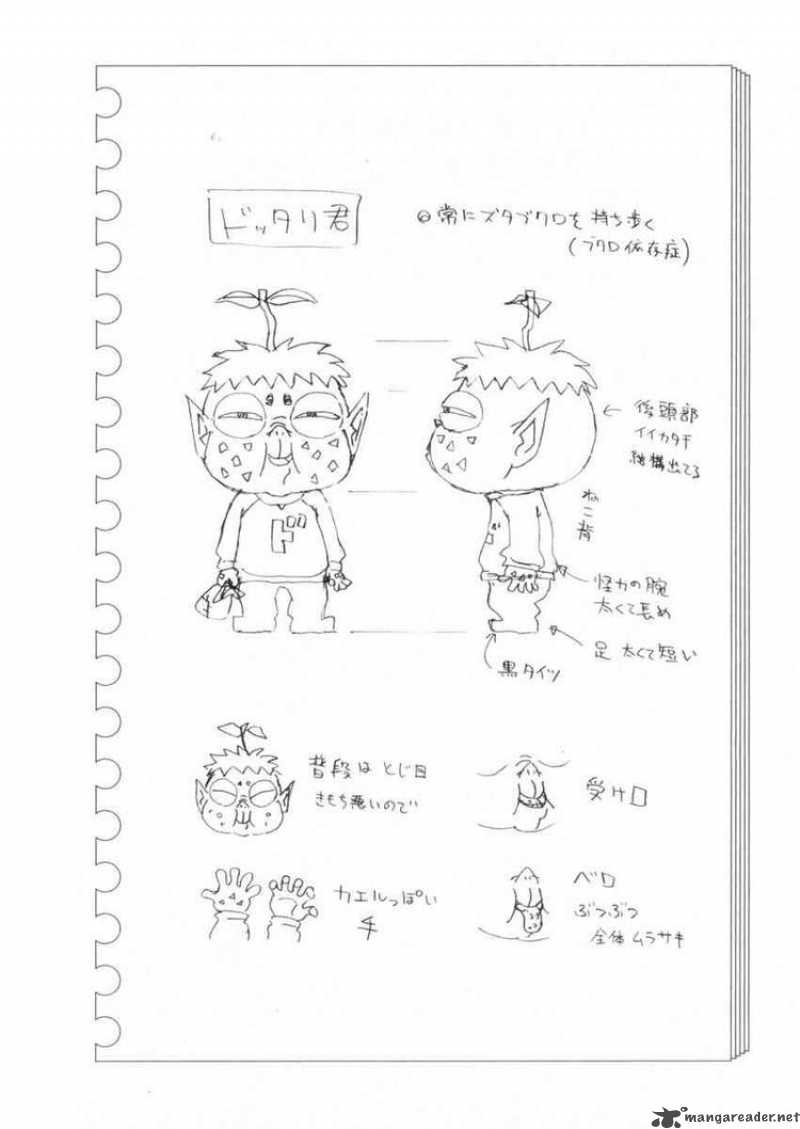 ドッタリ君
◎常にズタブクロを持ち歩く
(ブクロ依存症)
← 後頭部
イイカタチ
結構出てる
ねこ背
ド
怪力の腕
太くて長め
足 太くて短い
黒タイツ
普段はとじ目
きもち悪いので
受け口
カエルっぽい
手
ベロ
ぶつぶつ
全体ムラサキ
mangareader.net